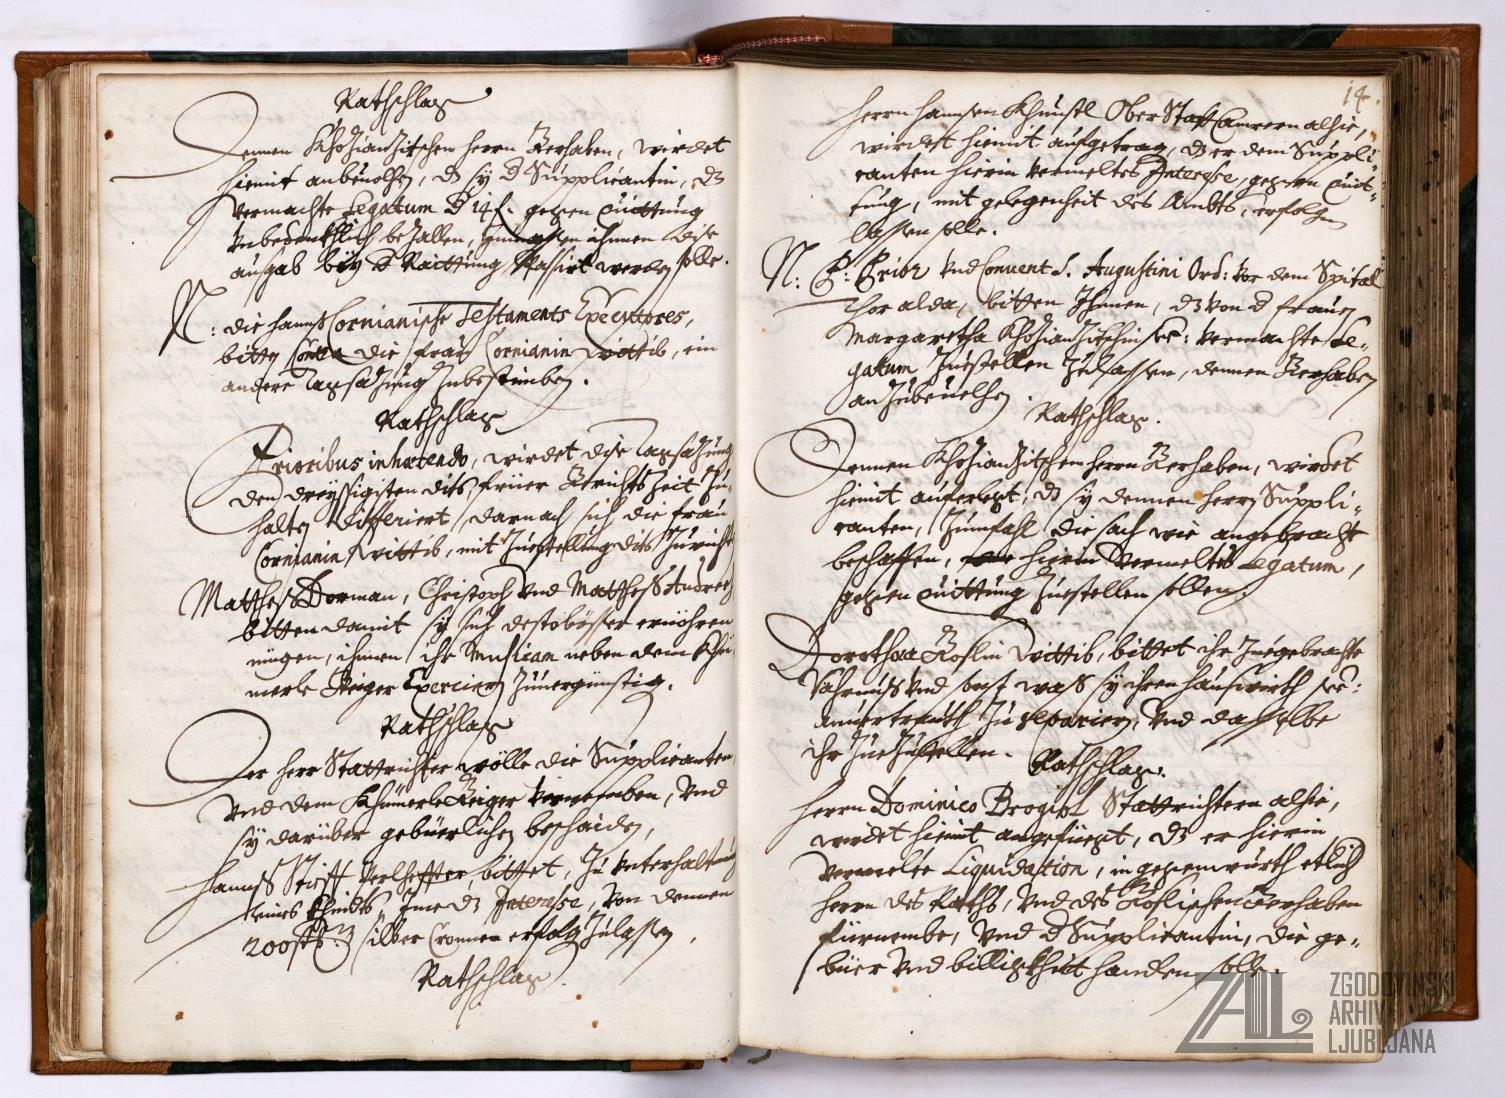 Rathschlag
Dennen Khoßianzitschen herrn Gerhaben, wirdet
hiemit anbeuolhen, dz sÿ d Supplicantin, dz
vermachte Legatum d 14 f. gegen quittung
vnbedenkhlich bezallen, ihnen dise
ausgab beÿ d Raittung Passirt werden solle.
N: die hannß Cornianische Testaments Executores,
bitten Contra die frau Cornianin Wittib, ein
andere Tagsazung zubestimben.
Rathschlag
Prioribus inhaerendo, wirdet dise Tagsazung
den dreÿssigisten dits, frueer Gerichts Zeit zu
halten differiert, darnach sich die frau
Cornianin Wittib, mit Zuestellung dits, zurichten
Matthess Dorman, Christoph vnd Matthess Andree
bitten damit sÿ sich destobösser ernöhren
mügen, ihnen ihr Musicam neben dem Khu
merle Geiger Exerciern zuuergünstig.
Rathschlag
Der herr Stattrichter wölle die Supplicanten
vnd dem Khumerle Geiger vernemben, vnd
sÿ darüber gebüerlichen beschaiden,
Hannß Stifft bittet, zu vnterhaltung
seines Khindts, Ime dz Interesse, von dennen
200 silber Cronnen erfolgen zulassen,
Rathschlag.
14.
Herrn Hannsen Khunstl Ober Statt Camrern alhie,
wirdet hiemit aufgetrag, dz er dem Suppli-
canten hierin vermeltes Interesse, gegen quit-
tung, mit gelegenheit des Ambts, erfolgen
lassen solle.
N: P: Prior vnd Conuent S. Augustini Ord: vor dem Spital
Thor alda, bitten Ihnen, dz von d frauen
Margaretha Khoßianzitschin see: vermachte Le-
gatum zuestellen zulassen, dennen Gerhaben
anzubeuelhen.
Rathschlag.
Dennen Khoßianzitschen herrn Gerhaben, wirdet
hiemit auferlegt, dz sÿ dennen herrn Suppli-
canten, zumfahl die sach wie angebracht
beschaffen, hierin vermeltes Legatum,
gegen quittung zuestellen sollen.
Dorothea Röslin Wittib, bittet ihr zuegebrachte
Vahrnuß vnd sonst waß sÿ ihren haußwirth see:
anuertrauth zu separiern, vnd dasselbe
ihr zuezustellen.
Rathschlag.
Herrn Dominico Brogiol Stattrichtern alhie,
wirdet hiemit angefüegt, dz er hierin
vermelte Liquidation, in gegenwürth etlich
herrn des Raths, vnd des Röslischen Gerhaben
fürnembe, vnd d Supplicantin, die ge-
büer vnd billigkheit handen solle.
ZAL
ZGODOVINSKI
ARHIV
LJUBLJANA